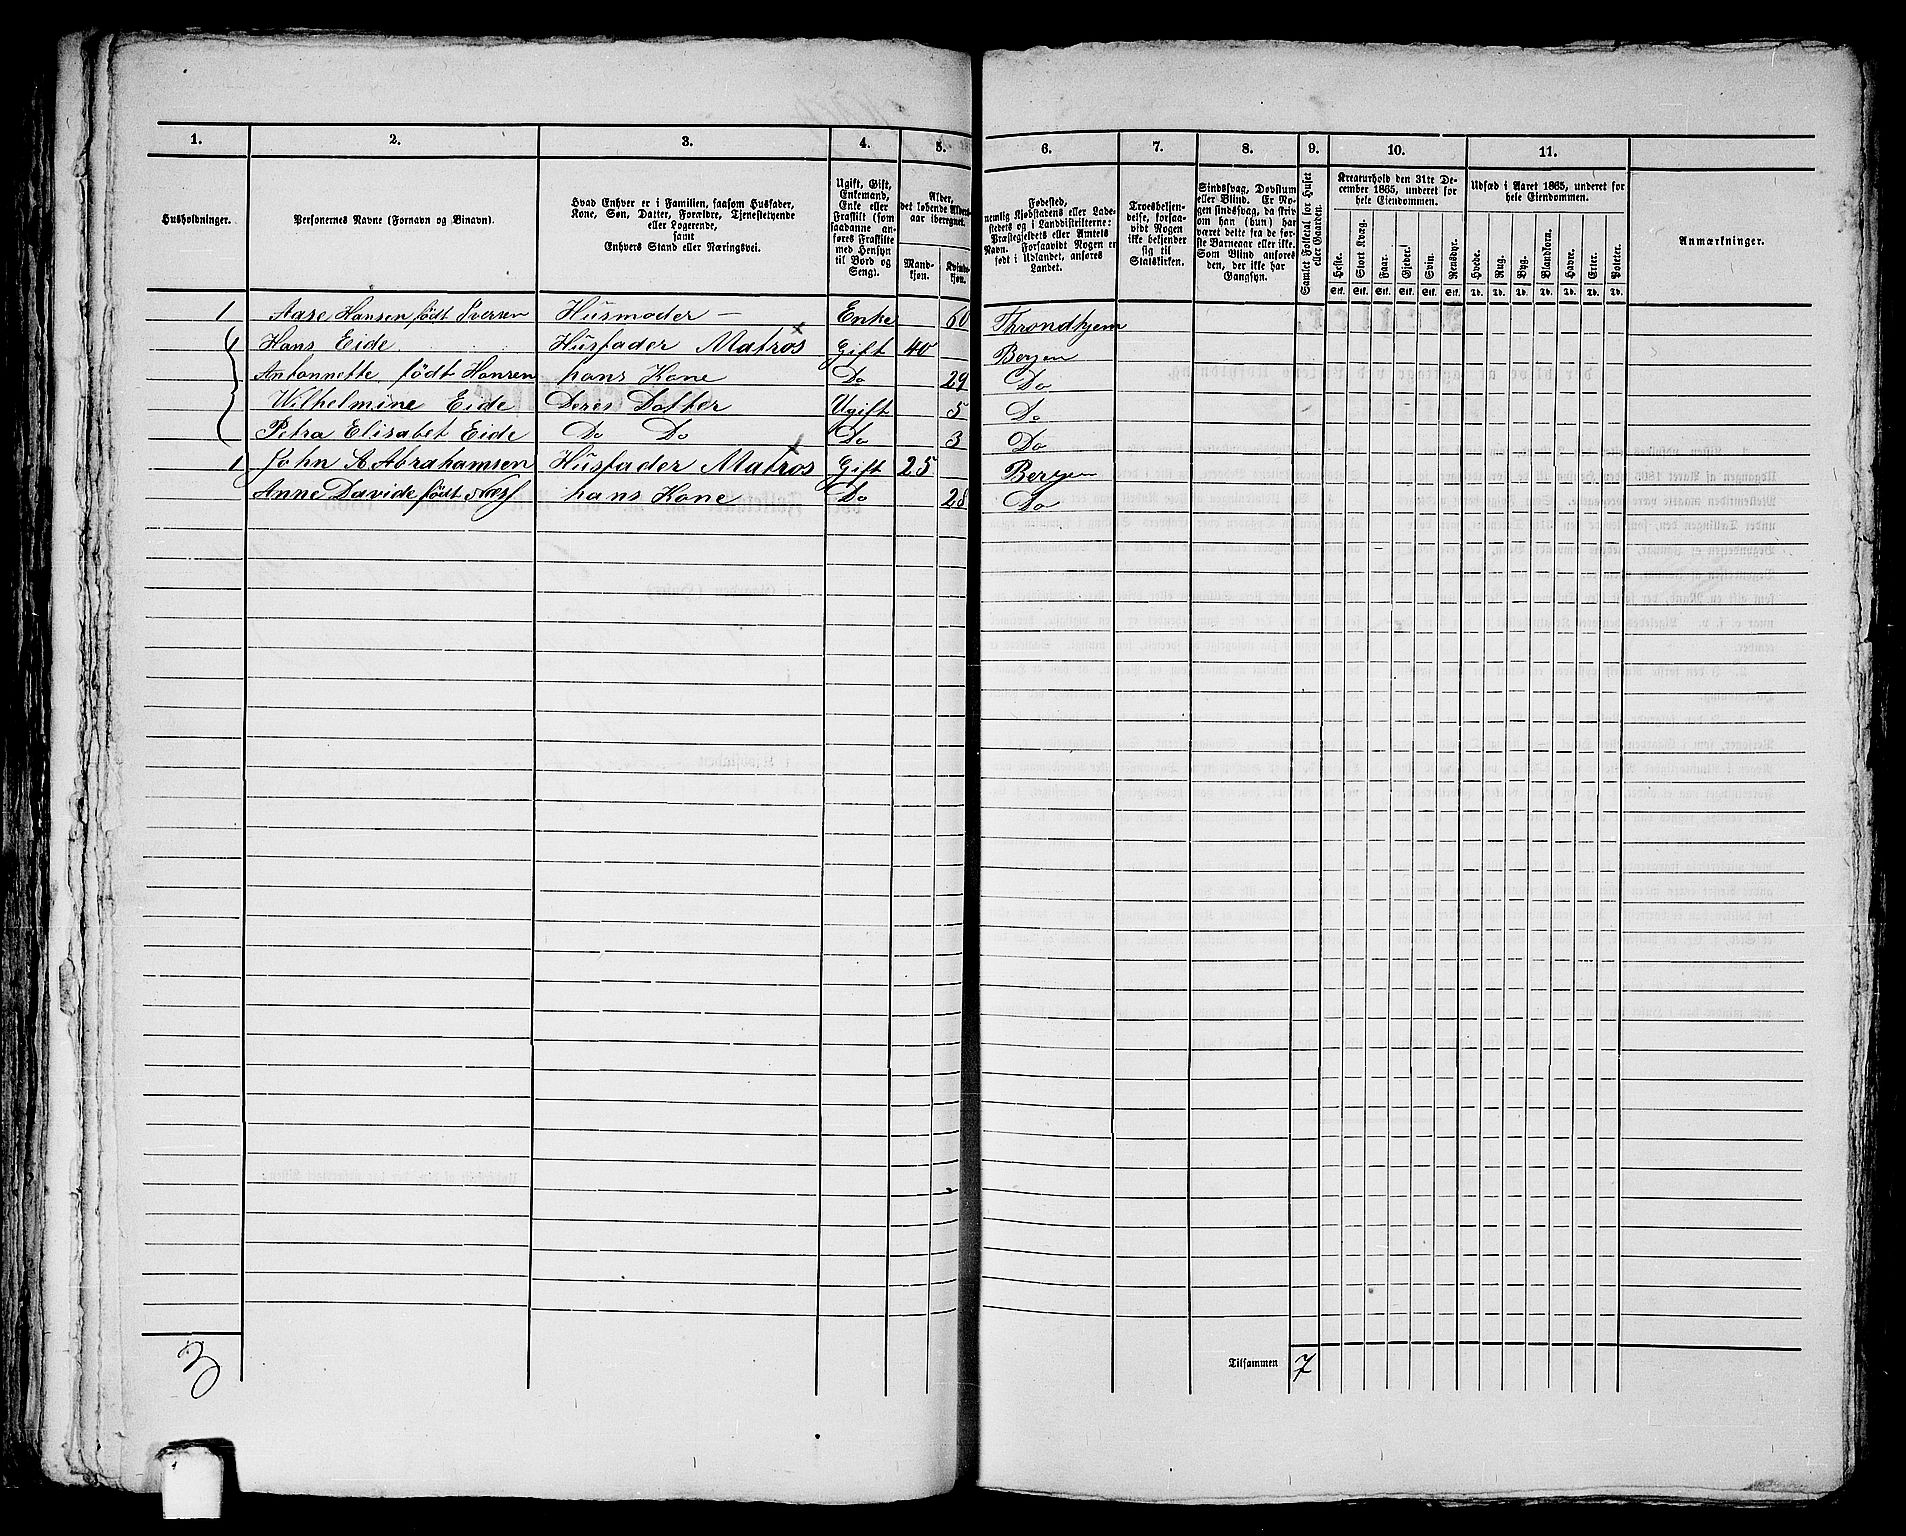 1. 2. 3. 4. 5. 6. 7. 8. 9. 10. 11.
Husholdninger.
Personernes Navne (Fornavn og Binavn).
Hvad Enhver er i Familien, saasom Husfader,
Kone, Søn, Datter, Forældre, Tjenestetyende
eller Logerende,
samt
Enhvers Stand eller Næringsvei.
Ugift, Gift,
Enkemand,
Enke eller
Fraskilt (som
saadanne an-
føres Fraskilte
med Hensyn
til Bord og
Seng).
Alder,
det løbende Alders-
aar iberegnet.
Mand-
kjøn.
Kvinde-
kjøn.
Fødested,
nemlig Kjøbstadens eller Lade-
stedets og i Landdistrikterne:
Præstegjeldets eller Amtets
Navn. Forsaavidt Nogen er
født i Udlandet, anføres
Landet.
Troesbekjen-
delse, forsaa-
vidt Nogen
ikke bekjender
sig til
Statskirken.
Sindssvag, Døvstum
eller Blind. Er No-
gen sindssvag, da skriv
om han (hun) har
været dette fra de før-
ste Barneaar eller ikke.
Som Blind ansøres
den, der ikke har
Gangsyn.
Samlet Folketal for Huset
eller Gaarden.
Kreaturhold den 31te De-
cember 1865, underet for
hele Eiendommen.
Heste. Stort Kvæg. Faar. Gjeder. Svin. Rensdyr.
Stk. Stk. Stk. Stk. Stk. Stk.
Udsæd i Aaret 1865, underet for
hele Eiendommen.
Hvede. Rug. Byg. Blandkorn. Havre. Erter. Poteter.
Td. Td. Td. Td. Td. Td. Td.
Anmærkninger.
1 Aase Hansen født Iversen Husmoder – Enke 60 Throndhjem
1 Hans Eide Husfader Matros Gift 40 Bergen
Antonnette født Hansen hans Kone Do 29 Do
Wilhelmine Eide Deres Datter Ugift 5 Do
Petra Elisabet Eide Do Do Do 3 Do
1 John A Abrahamsen Husfader Matros Gift 25 Bergen
Anne Davide født hans Kone Do 28 Do
3 Tilsammen 7